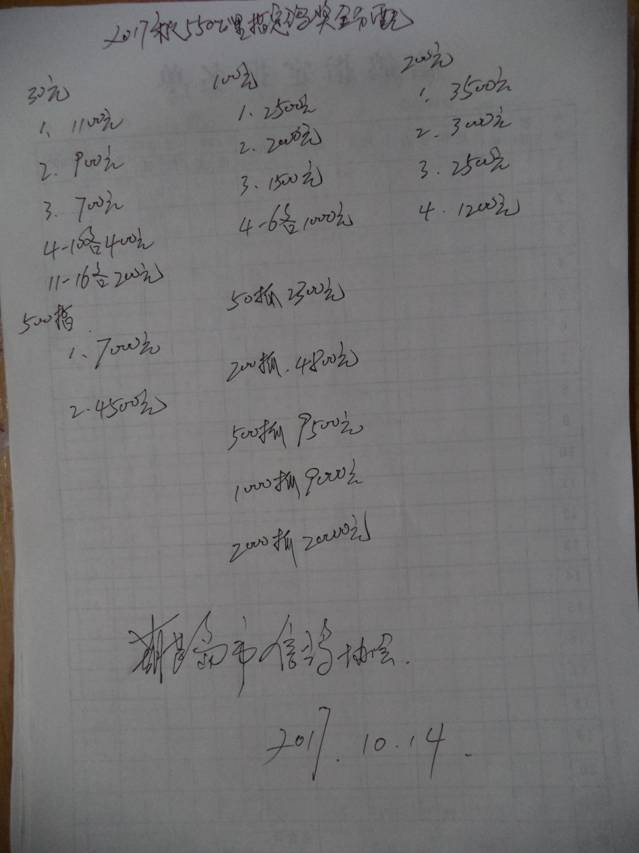 2017秋550公里指定鸽奖金分配
30元
1、1100元
2、900元
3、700元
4-10各400元
11-16各200元
100元
1、2500元
2、2000元
3、1500元
4-6各1000元
200元
1、3500元
2、3000元
3、2500元
4、1200元
500指
1、7000元
2、4500元
50抓2300元
200抓、4800元
500抓9500元
1000抓9000元
2000抓20000元
葫芦岛市信鸽协会.
2017.10.14.